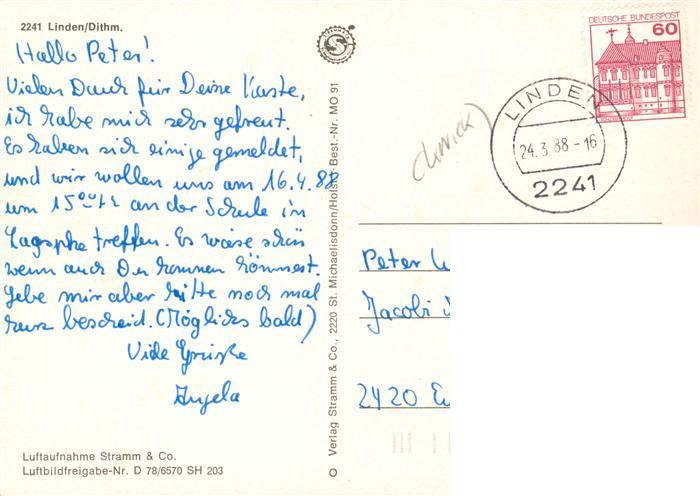 2241 Linden/Dithm.
Hallo Peter!
Vielen Dank für Deine Karte,
ich habe mich sehr gefreut.
Es haben sich einige gemeldet,
und wir wollen uns am 16.4.88
um 15⁰⁰ Uhr an der Schule in
treffen. Es wäre schön
wenn auch Du kommen könntest.
Gebe mir aber bitte noch mal
kurz bescheid. (Möglichs bald)
Viele Grüße
Angela
Luftaufnahme Stramm & Co.
Luftbildfreigabe-Nr. D 78/6570 SH 203
© Verlag Stramm & Co., 2220 St. Michaelisdonn/Holst. Best.-Nr. MO 91
DEUTSCHE BUNDESPOST
60
LINDEN
24.3.88-16
2241
Peter
Jacobi
2420